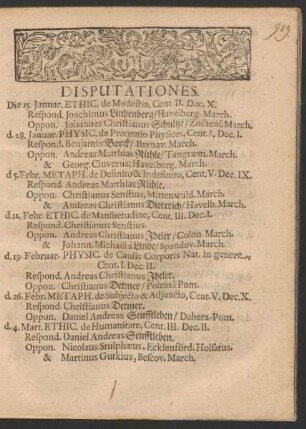 DISPUTATIONES.
Die 15. Januar. ETHIC. de Modestia, Cent. II. Dec. X.
Respond. Joachimus Lindenberg/ Havelberg. March.
Oppon. Johannes Christianus Schultze/ Zossenf. March.
d. 28. Januar. PHYSIC. de Prooemio Physices, Cent. I, Dec. I.
Respond. Benjamin Borck/ Bernav. March.
Oppon. Andreas Matthias Rühle/ Tangram. March.
& Georg. Claverus, Havelberg. March.
d 5. Febr. METAPH. de Definito & Indefinito, Cent. V. Dec. IX.
Respond. Andreas Matthias Rühle.
Oppon. Christianus Senftius, Mittenwald. March.
& Andreas Christianus Dietrich/ Havelb. March.
d. 12. Febr. ETHIC. de Mansuetudine, Cent. III. Dec. I.
Respond. Christianus Senftius.
Oppon. Andreas Christianus Ideler/ Colon. March.
& Johann. Michaël à Linde/ Spandov. March.
d. 19. Februar. PHYSIC. de Causis Corporis Nat. in genere,
Cent. I. Dec. II.
Respond. Andreas Christianus Ideler.
Oppon. Christianus Detner/ Polzinâ Pom.
d. 26. Febr. METAPH. de Subjecto & Adjuncto, Cent. V. Dec. X.
Respond. Christianus Detner.
Oppon. Daniel Andreas Senfftleben/ Dabera-Pom.
d. 4. Mart. ETHIC. de Humanitate, Cent. III. Dec. II.
Respond. Daniel Andreas Senfftleben.
Oppon. Nicolaus Stulphæus, Ecklenförd. Holsatus.
& Martinus Gutkius, Bescov. March.